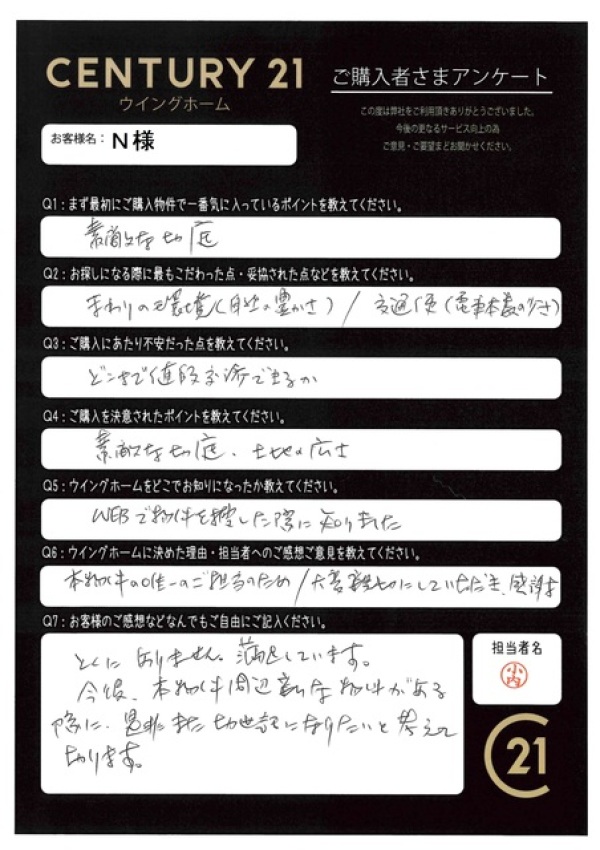 CENTURY 21
ウイングホーム
ご購入者さまアンケート
この度は弊社をご利用頂きありがとうございました。
今後の更なるサービス向上の為
ご意見・ご要望までお聞かせください。
お客様名： N様
Q1：まず最初にご購入物件で一番気に入っているポイントを教えてください。
素敵なお庭
Q2：お探しになる際に最もこだわった点・妥協された点などを教えてください。
まわりの環境（自然の豊かさ）/ 交通便（電車本数の少なさ）
Q3：ご購入にあたり不安だった点を教えてください。
どこまで値段交渉できるか
Q4：ご購入を決意されたポイントを教えてください。
素敵なお庭、土地の広さ
Q5：ウイングホームをどこでお知りになったか教えてください。
WEBで物件を探した際に知りました
Q6：ウイングホームに決めた理由・担当者へのご感想ご意見を教えてください。
本物件の唯一のご担当のため / 大変親切にしていただき、感謝す
Q7：お客様のご感想などなんでもご自由にご記入ください。
とくにありません。満足しています。
今後、本物件周辺 な物件がある
際に、是非またお世話になりたいと考えて
おります。
担当者名
小内
C21